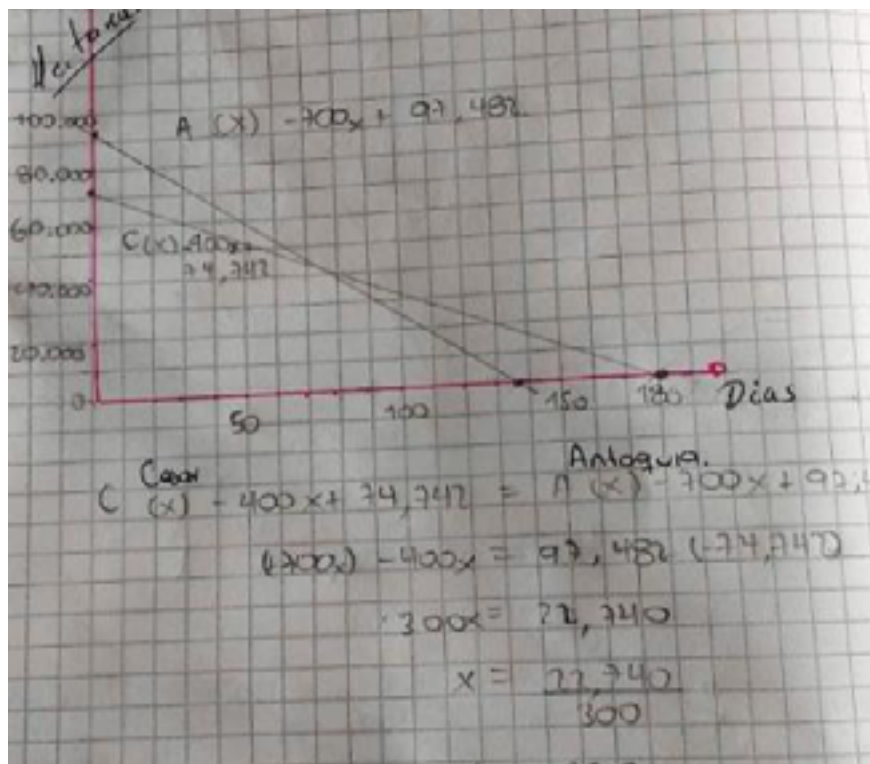 100.000
A (x) -700x + 97,482
80.000
60.000
C(x) 400x+
74,742
40.000
20.000
0
50
100
150
180
Dias
Cesar
Antoquia.
C (x) - 400x + 74,742 = A (x) - 700x + 97,4
(+700x) - 400x = 97,482 (-74,742)
300x = 22,740
x = 22,740
300